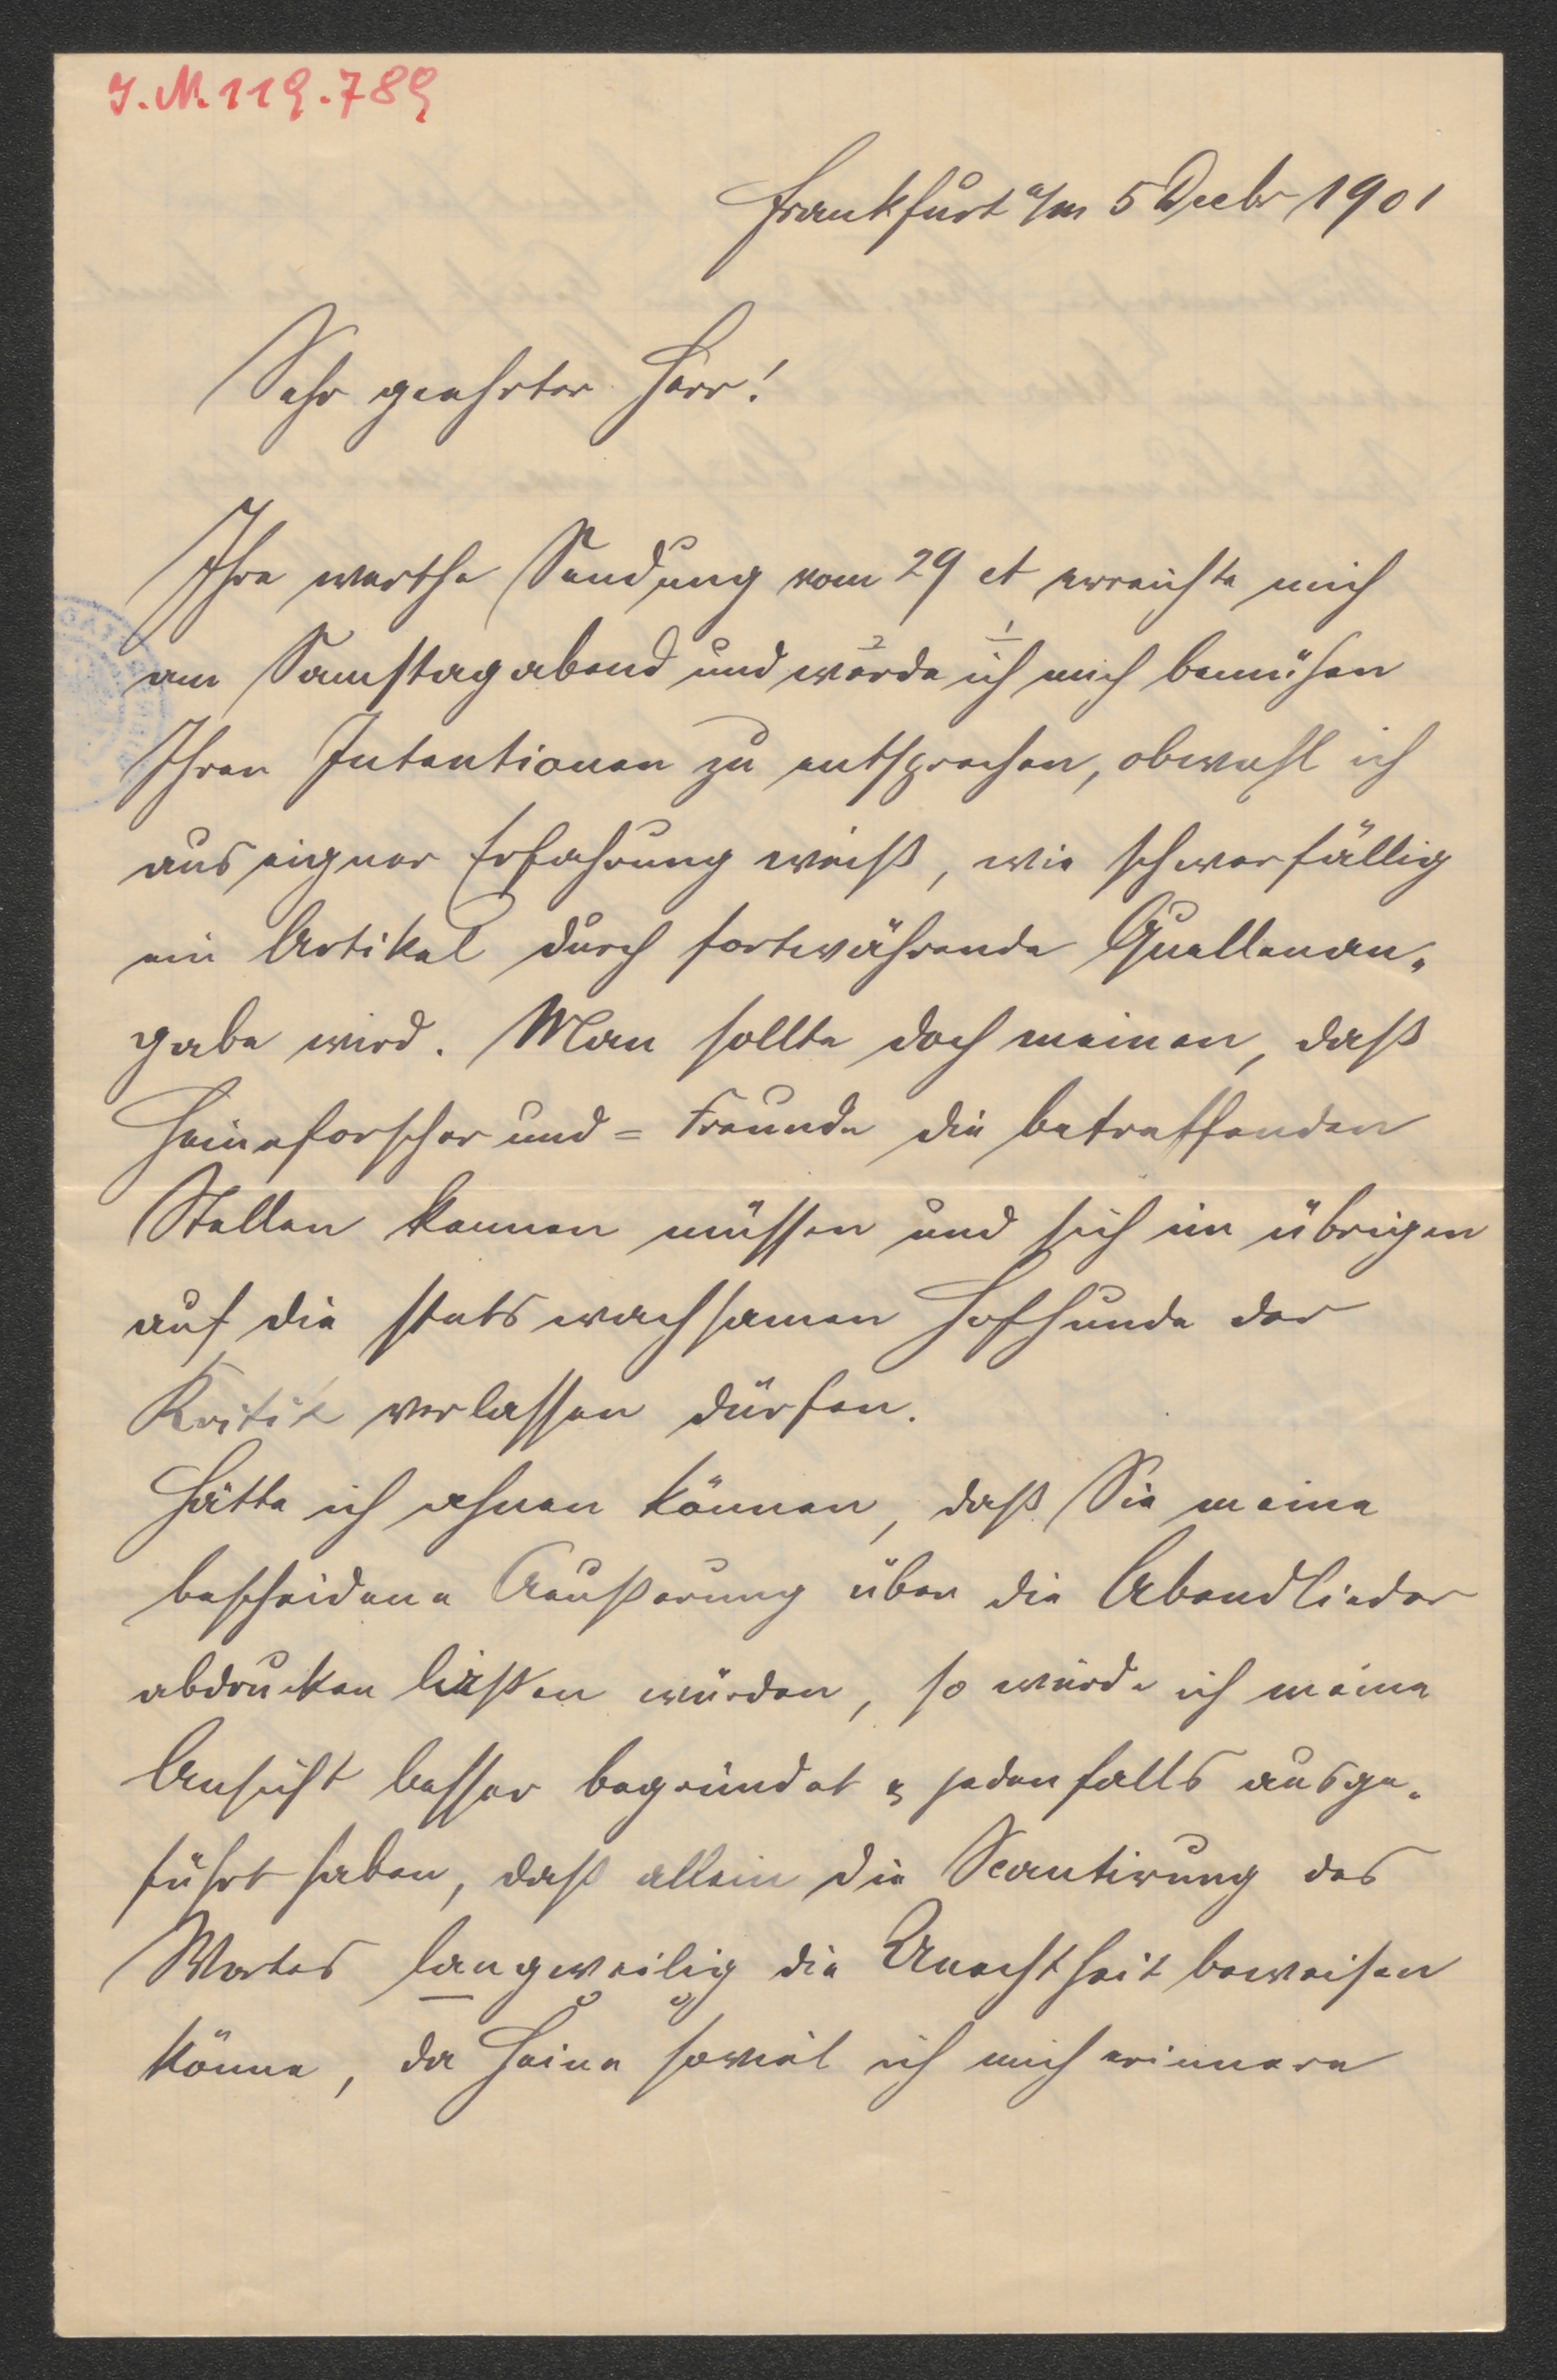 I.N. 119.789
Frankfurt a/m 5 Decbr 1901
Sehr geehrter Herr!
Ihre werthe Sendung vom 29 ct erreichte mich
am Samstag abend und werde ich mich bemühen
2 1
Ihren Intentionen zu entsprechen, obwohl ich
aus eigner Erfahrung weiß, wie schwerfällig
ein Artikel durch fortwährende Quellenan-
gabe wird. Man sollte doch meinen, daß
Heineforscher und = Freunde die betreffenden
Stellen kennen müssen und sich im übrigen
auf die stets wachsamen Hofhunde der
Kritik verlassen dürfen.
Hätte ich ahnen können, daß Sie meine
bescheidene Aeußerung über die Abendlieder
abdrucken ließen würden, so würde ich meine
Ansicht besser begründet & jedenfalls ausge-
führt haben, daß allein die Scantirung des
Wortes langweilig die Unechtheit beweisen
könne, da Heine soviel ich mich erinnere